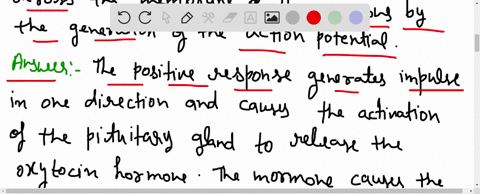 the membrane
by
the generation of the action potential.
Answer:- The positive response generates impulse
in one direction and causes the activation
of the pituitary gland to release the
oxytocin hormone. The mormone causes the